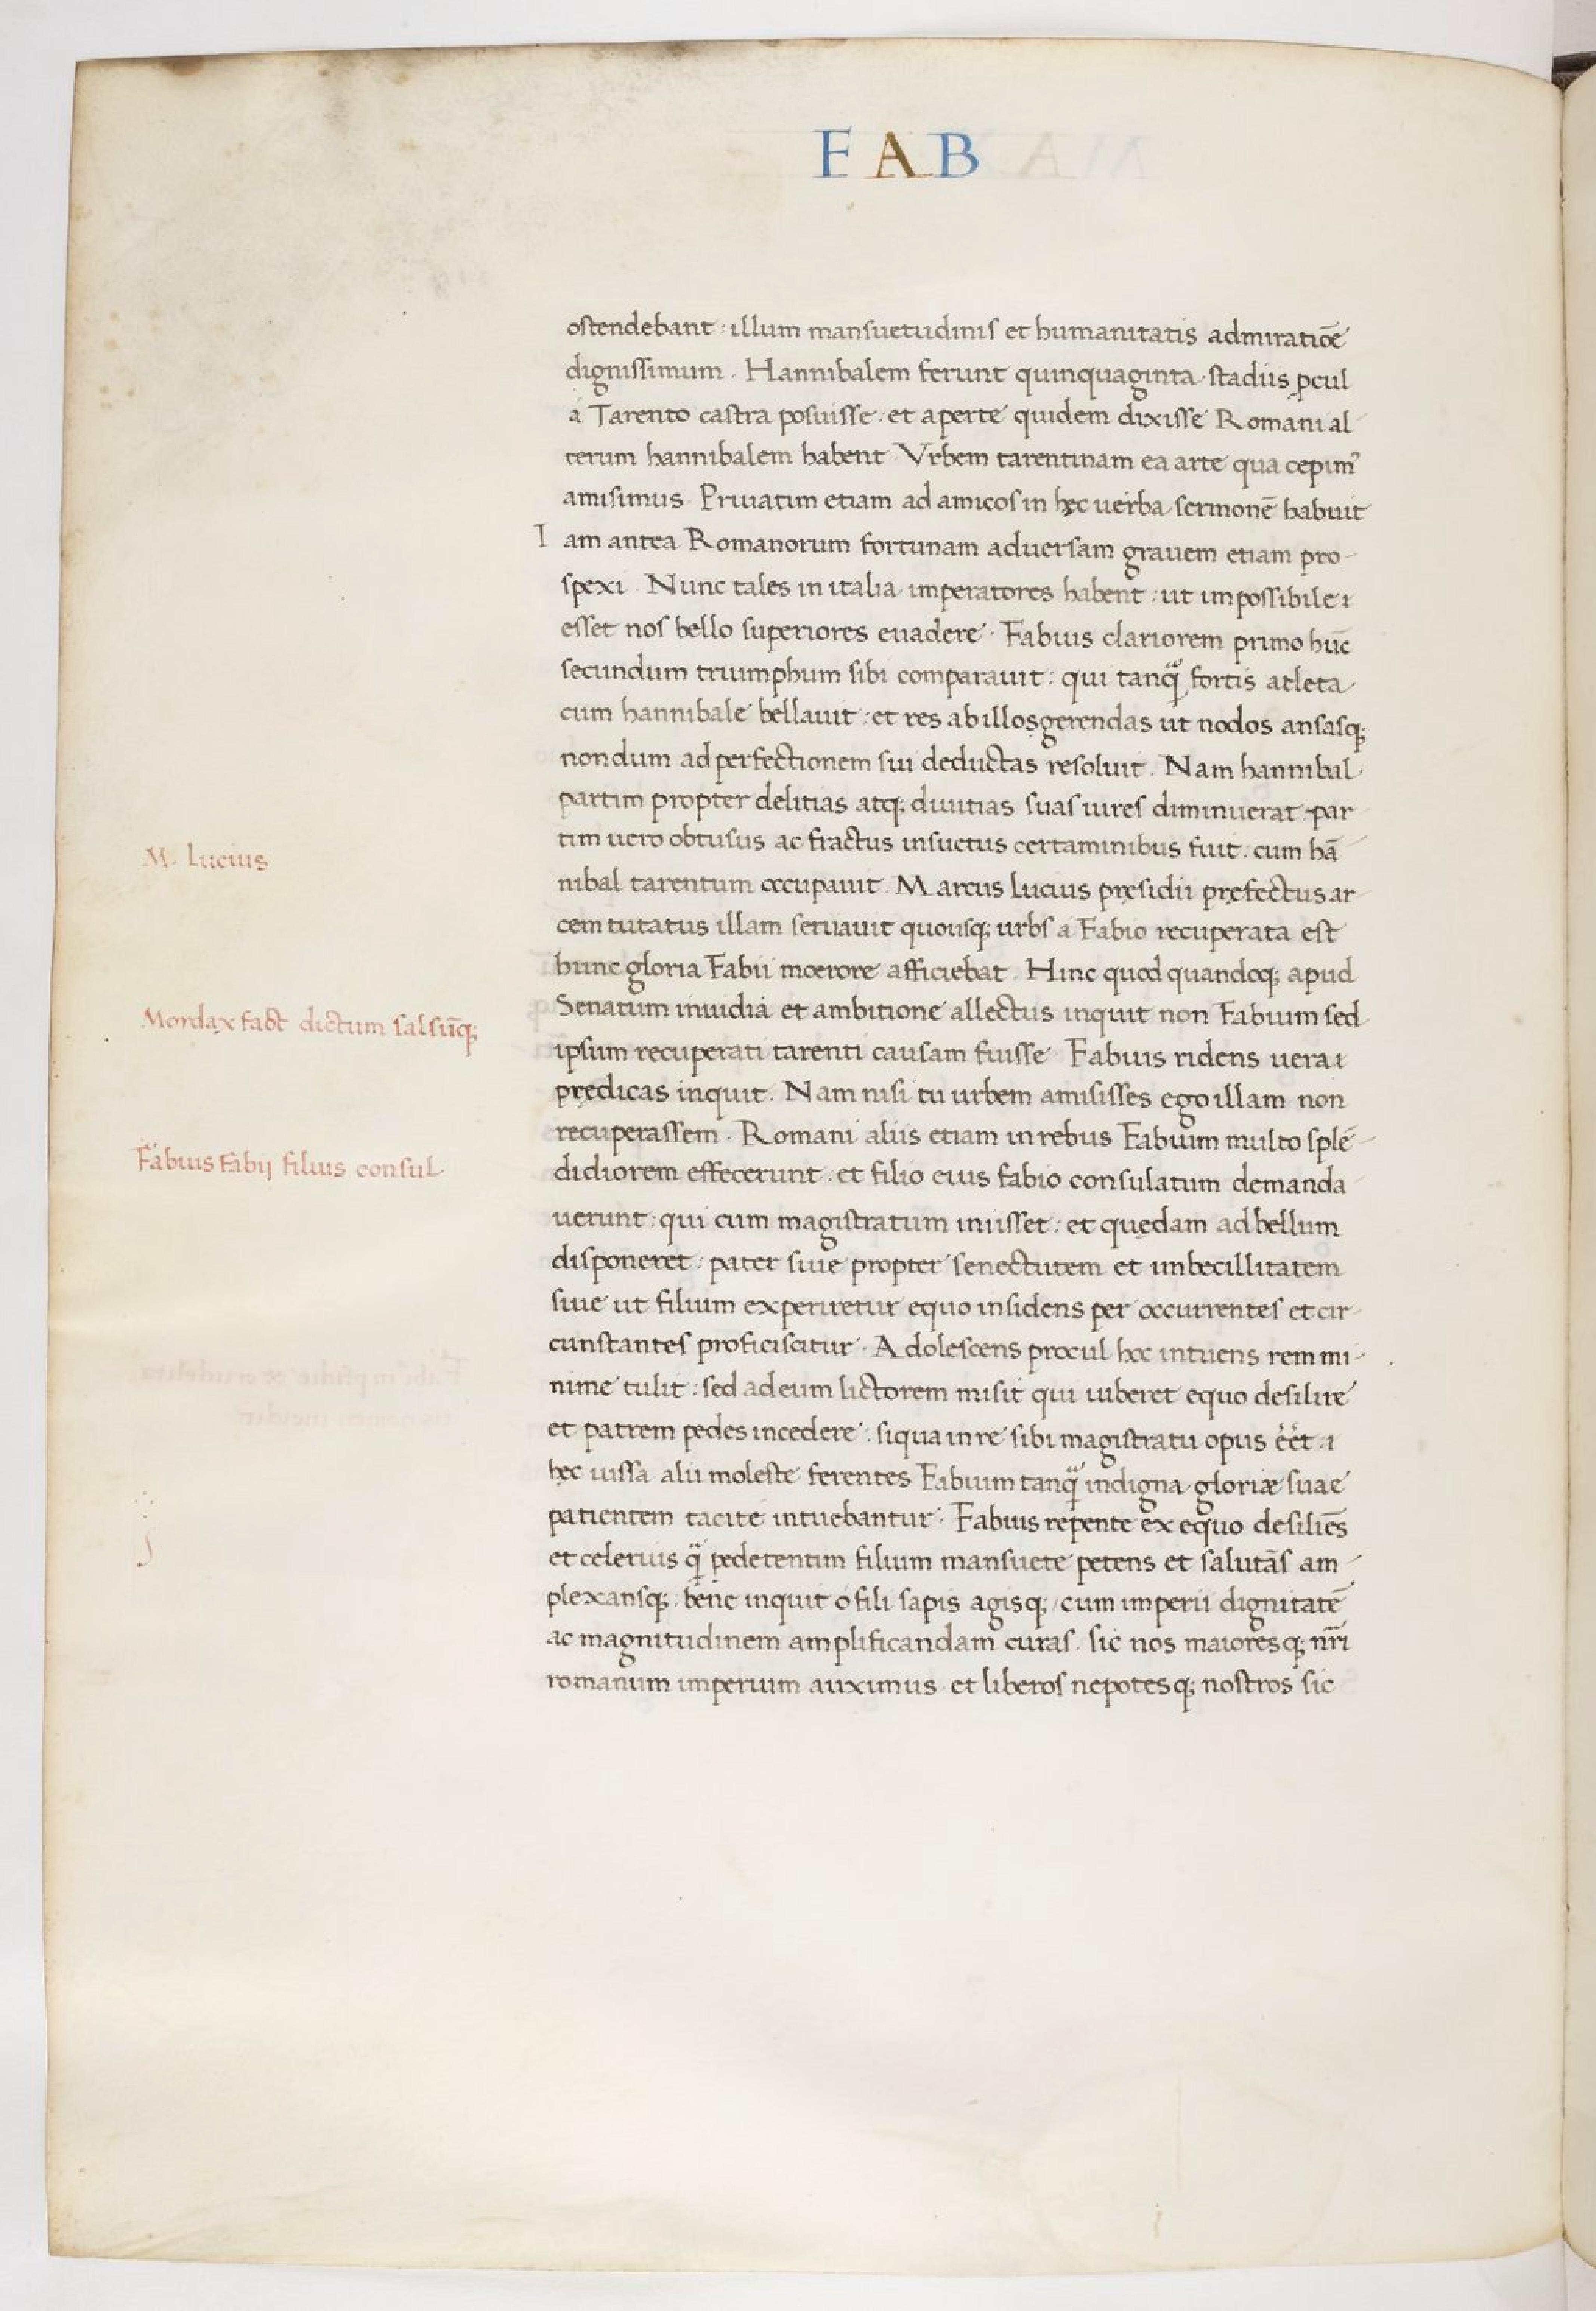 FAB
ostendebant : illum mansuetudinis et humanitatis admiratiōe
dignissimum . Hannibalem ferunt quinquaginta stadiis ꝓcul
a Tarento castra posuisse : et aperte quidem dixisse Romani al
terum hannibalem habent Vrbem tarentinam ea arte qua cepimꝰ
amisimus . Priuatim etiam ad amicos in hęc uerba sermonē habuit
Iam antea Romanorum fortunam aduersam grauem etiam pro-
spexi . Nunc tales in italia imperatores habent : ut impossibile
esset nos bello superiores euadere . Fabius clariorem primo hūc
secundum triumphum sibi comparauit : qui tanꝗ fortis atleta
cum hannibale bellauit : et res ab illo gerendas ut nodos ansasq;
nondum ad perfectionem sui deductas resoluit . Nam hannibal
partim propter delitias atq; diuitias suas uires diminuerat . par
tim uero obtusus ac fractus insuetus certaminibus fuit : cum hā
M. Lucius
nibal tarentum occupauit . Marcus Lucius pręsidii pręfectus ar
cem tutatus illam seruauit quousq; urbs a Fabio recuperata est
hunc gloria Fabii moerore afficiebat . Hinc quod quandoq; apud
Senatum inuidia et ambitione allectus inquit non Fabium sed
Mordax fabī dictum salsūq;
ipsum recuperati tarenti causam fuisse Fabius ridens uera
prędicas inquit . Nam nisi tu urbem amisisses ego illam non
recuperassem . Romani aliis etiam in rebus Fabium multo splē-
Fabius Fabij filius consul
didiorem effecerunt : et filio eius fabio consulatum demanda
uerunt : qui cum magistratum iniisset : et quędam ad bellum
disponeret : pater siue propter senectutem et imbecillitatem
siue ut filium experiretur equo insidens per occurrentes et cir-
cunstantes proficiscitur . Adolescens procul hoc intuens rem mi-
nime tulit : sed ad eum lictorem misit qui iuberet equo desilire
et patrem pedes incedere : siqua in re sibi magistratu opus eēt :
hęc iussa alii moleste ferentes Fabium tanꝗ indigna gloriæ suae
patientem tacite intuebantur . Fabius repente ex equo desiliēs
et celerius ꝗ pedetentim filium mansuete petens et salutās am-
plexansq; bene inquit o fili sapis agisq; cum imperii dignitatē
ac magnitudinem amplificandam curas . sic nos maioresq; nr̄i
romanum imperium auximus et liberos nepotesq; nostros sic